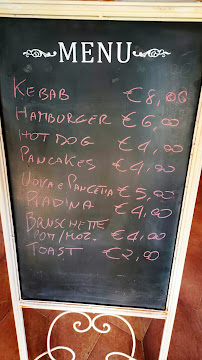 MENU
KEBAB €8,00
HAMBURGER €6,00
HOT DOG €4,00
PANCAKES €4,00
UOVA E PANCETTA €5,00
PIADINA €4,00
BRUSCHETTE
POM/MOZ. €4,00
TOAST €2,00